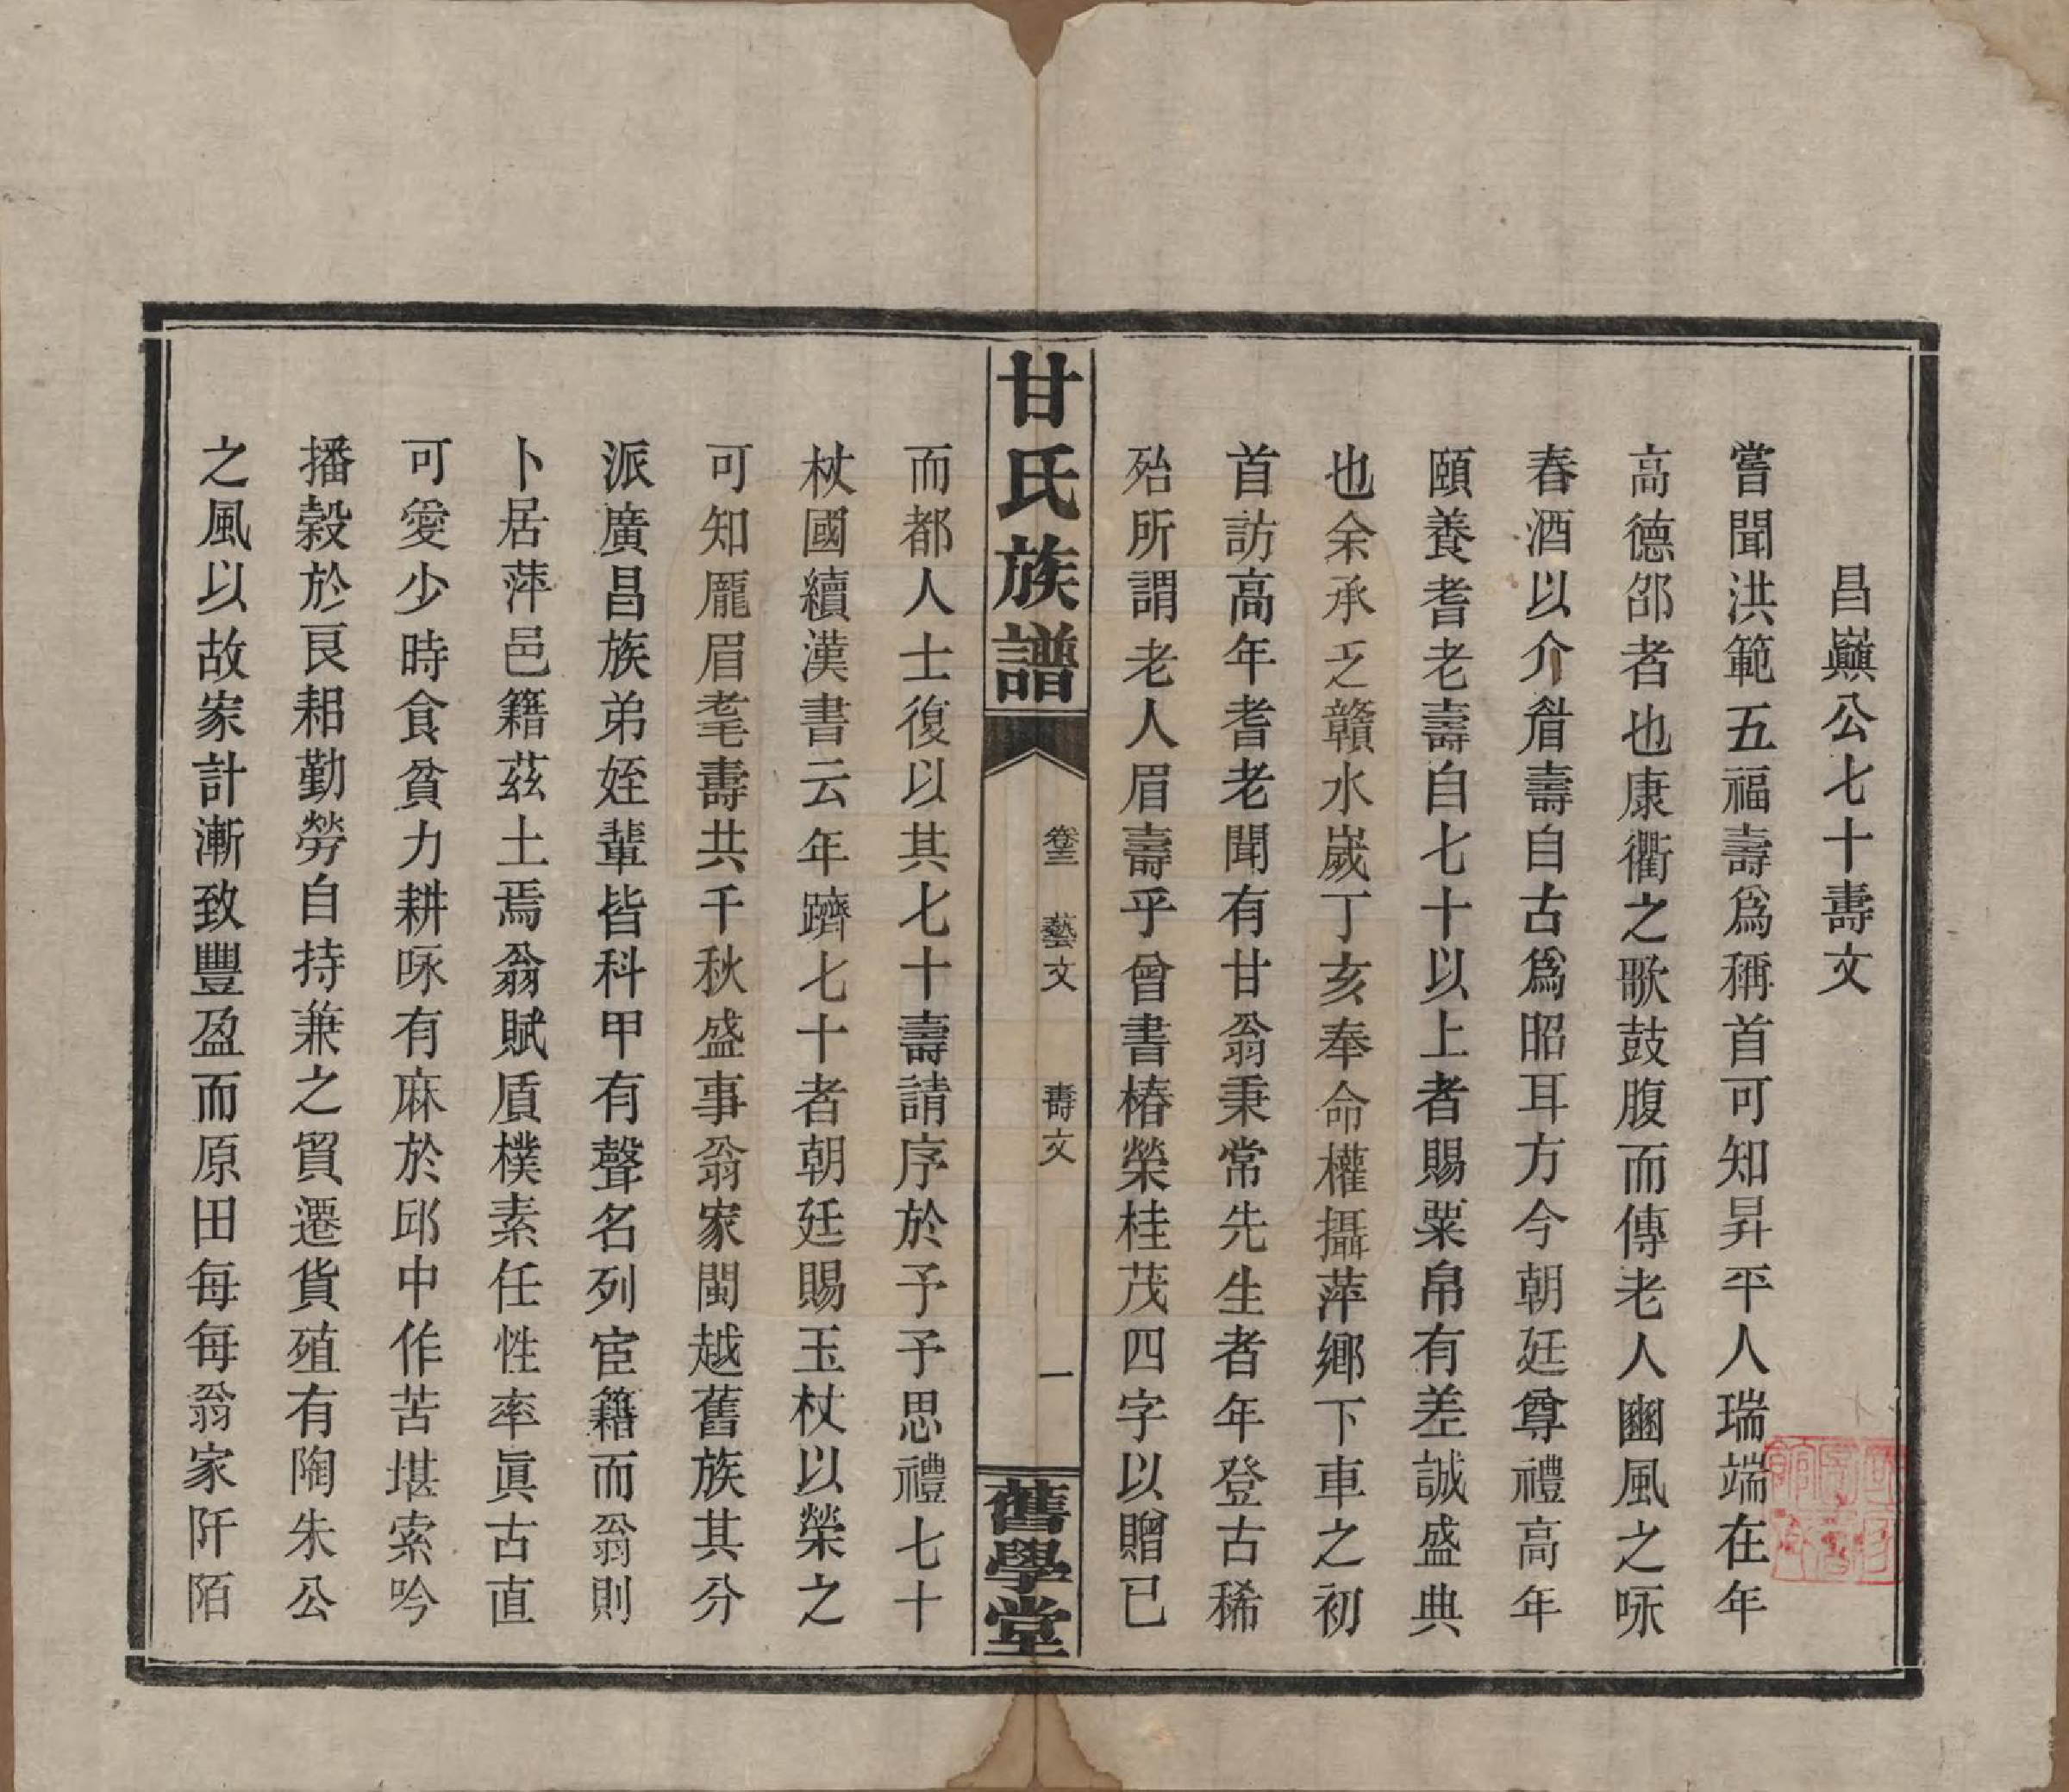 昌巔公七十壽文
嘗聞洪範五福壽爲稱首可知昇平人瑞端在年
高德邵者也康衢之歌鼓腹而傳老人豳風之咏
春酒以介眉壽自古爲昭耳方今朝廷尊禮高年
頤養耆老壽自七十以上者賜粟帛有差誠盛典
也余承乏贛水嵗丁亥奉命權攝萍鄉下車之初
首訪高年耆老聞有甘翁秉常先生者年登古稀
殆所謂老人眉壽乎曾書椿榮桂茂四字以贈已
甘氏族譜
卷三 藝文 壽文 一
舊學堂
而都人士復以其七十壽請序於予予思禮七十
杖國續漢書云年躋七十者朝廷賜玉杖以榮之
可知龐眉耄壽共千秋盛事翁家閩越舊族其分
派廣昌族弟姪輩皆科甲有聲名列宦籍而翁則
卜居萍邑籍茲土焉翁賦質樸素任性率眞古直
可愛少時食貧力耕咏有麻於邱中作苦堪索吟
播穀於良耜勤勞自持兼之貿遷貨殖有陶朱公
之風以故家計漸致豐盈而原田每每翁家阡陌